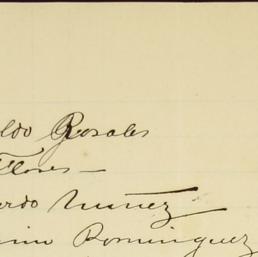 ldo Rosales
Flores —
ardo Nuñez
Dominguez